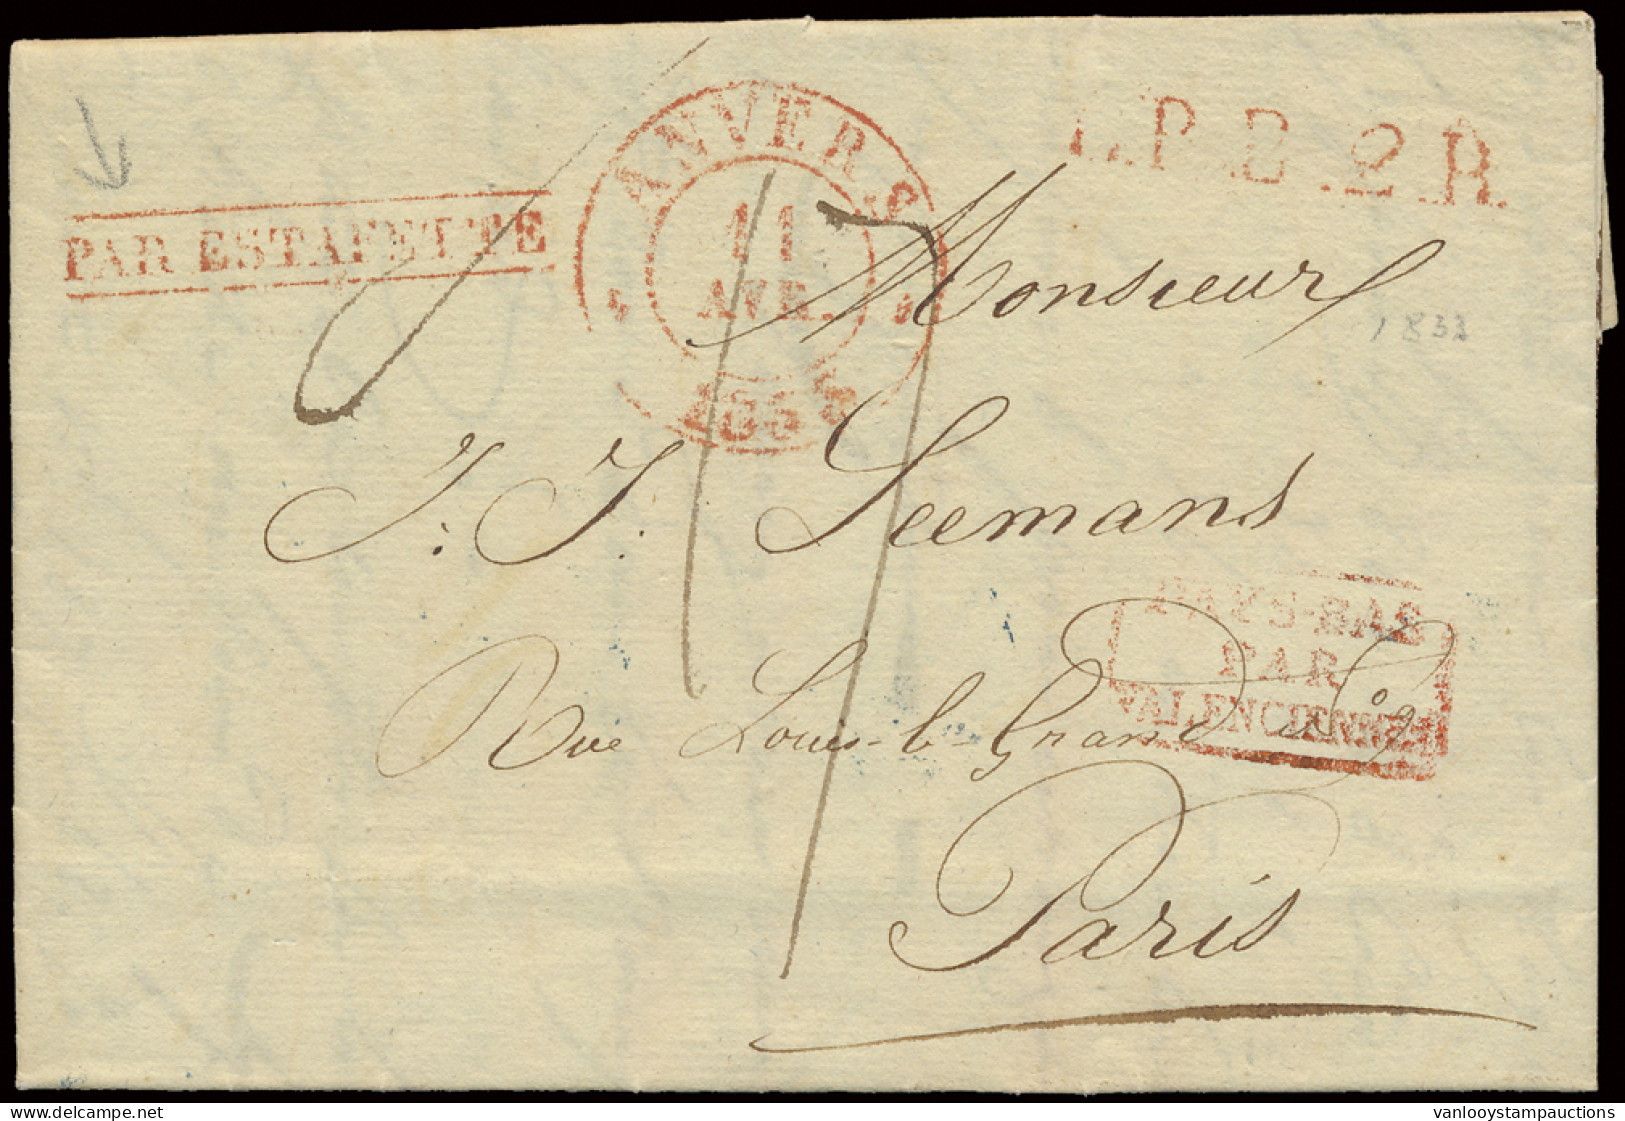 ANVERS
11
AVR.
L.P.B.2.R.
PAR ESTAFETTE
Monsieur
J. J. Seemans
PAYS-BAS
PAR
VALENCIENNES
Rue Louis-le-Grand No 9
Paris
delcampe.net
vanlooystampauctions